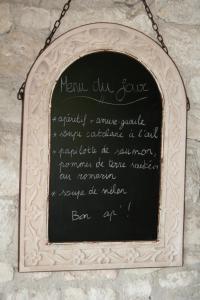 Menu du jour
* apéritif + amuse gueule
* soupe catalane à l'ail
* papillotte de saumon,
pommes de terre sautées
au romarin
* soupe de melon
Bon ap'!